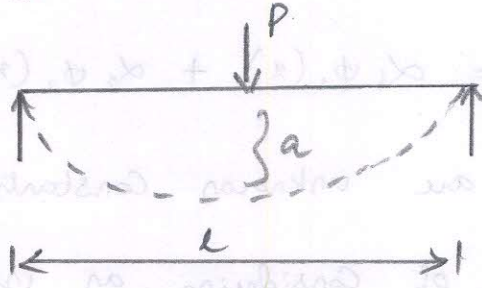 P
a
l